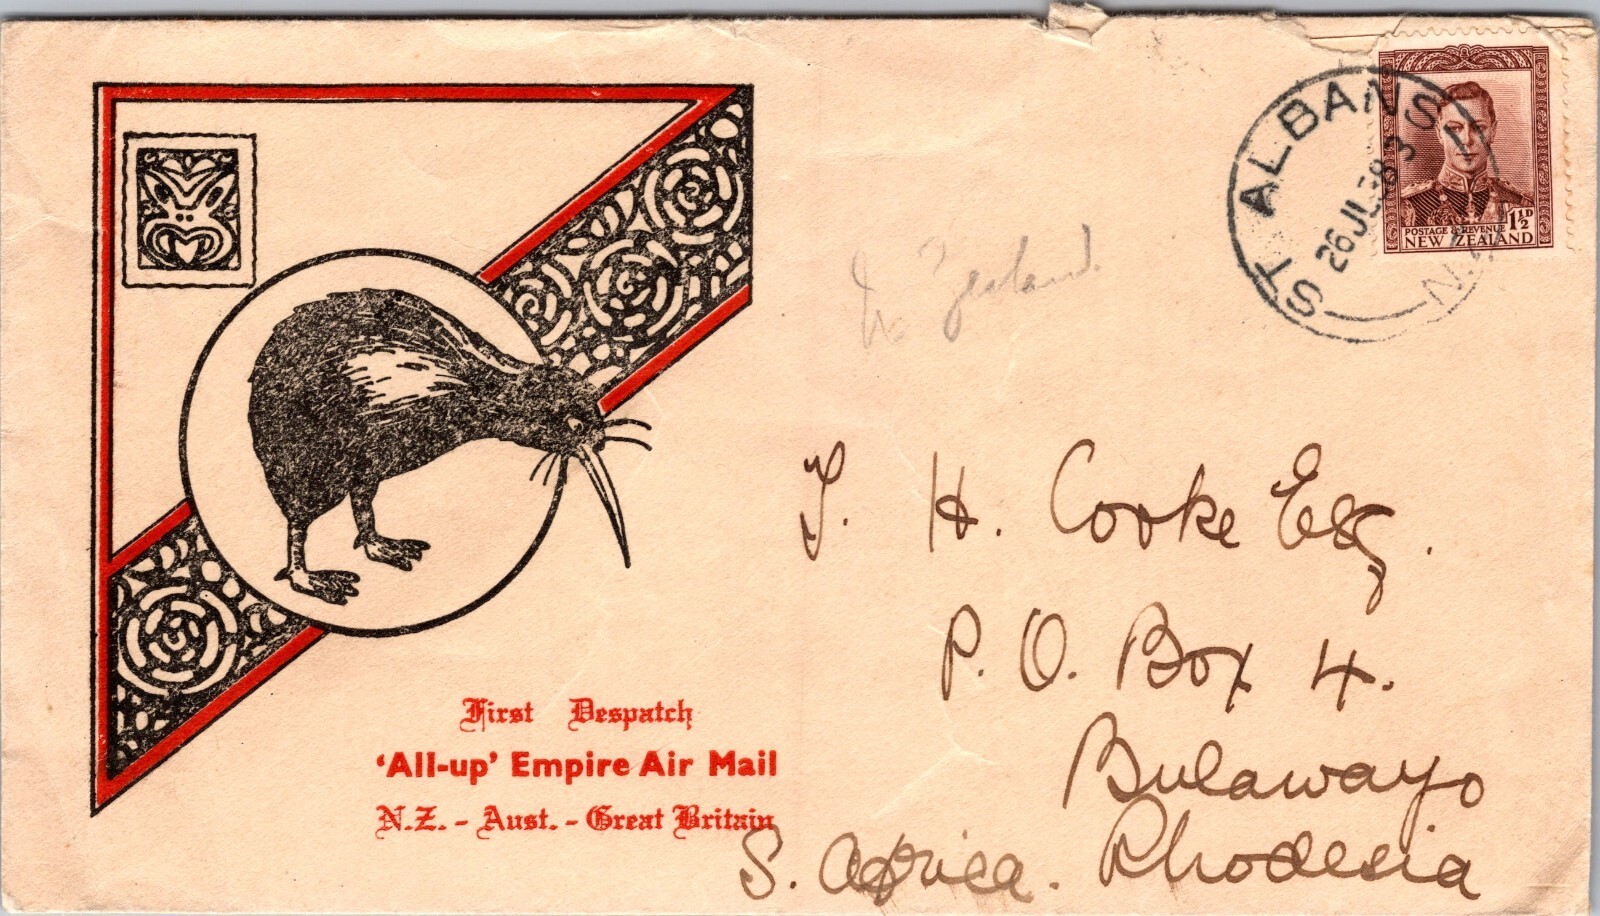 ST ALBANS N.Z.
26 JL 38 3
POSTAGE & REVENUE 1½D
NEW ZEALAND
N. Zealand.
T. H. Cooke Esq.
P. O. Box 4.
Bulawayo
S. Africa. Rhodesia
First Despatch
'All-up' Empire Air Mail
N.Z. - Aust. - Great Britain